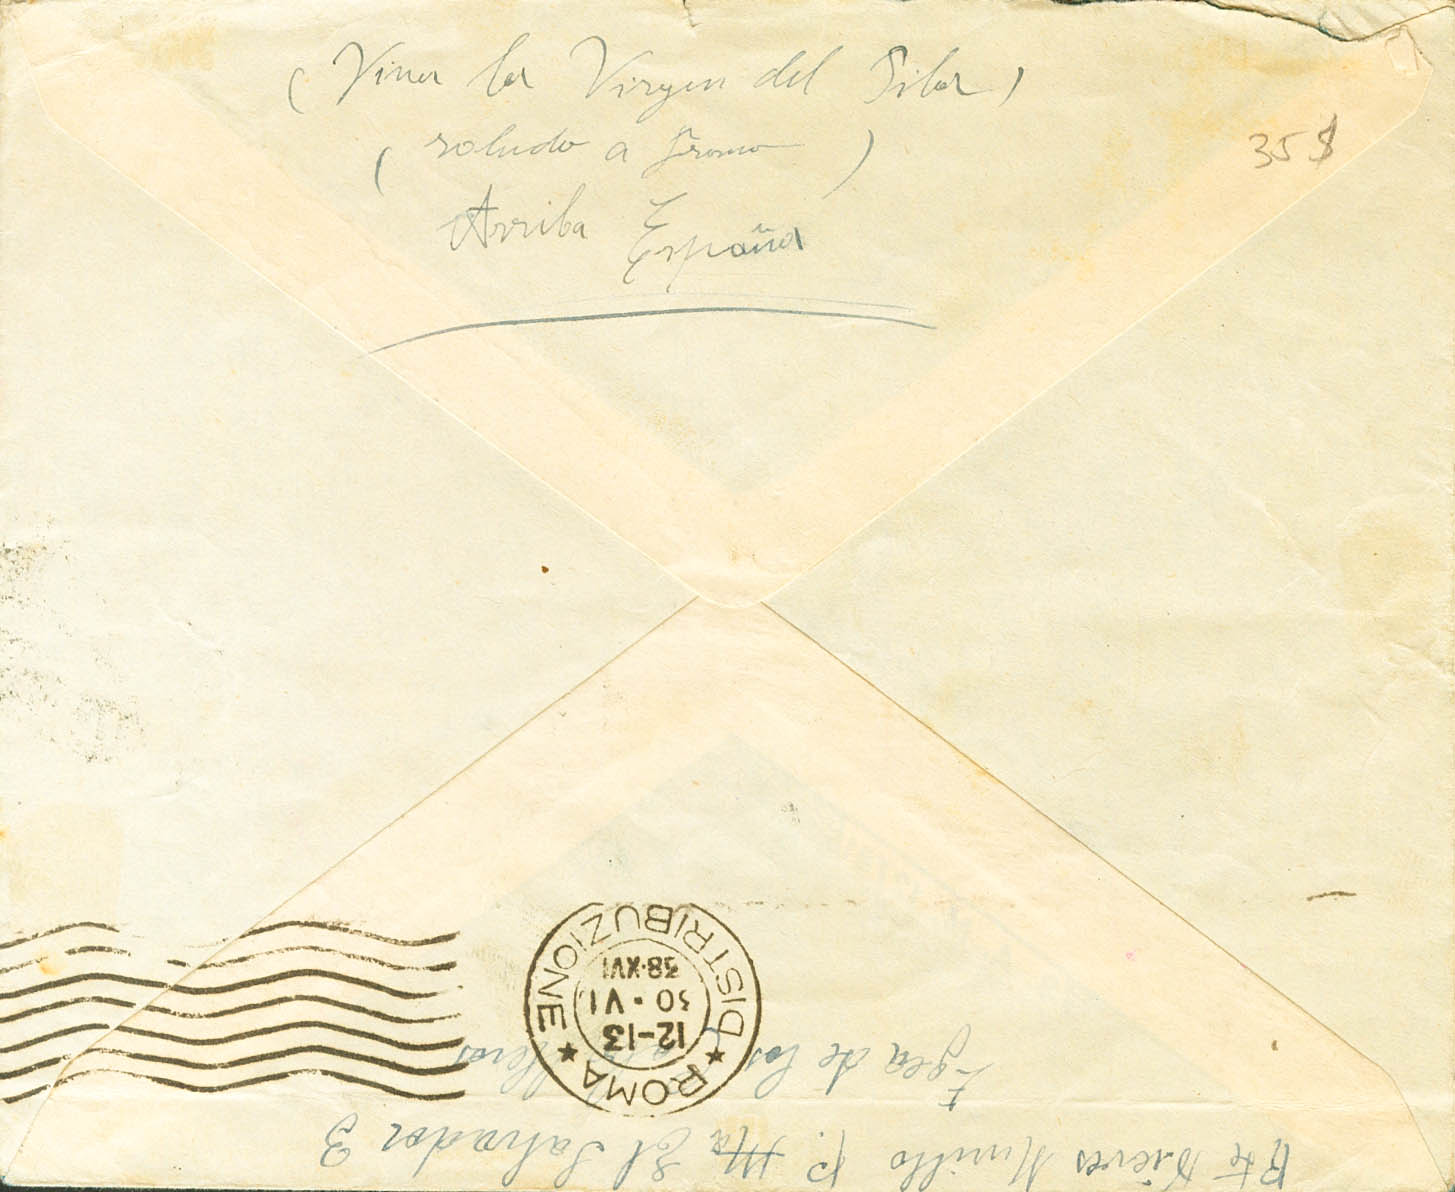 (Viva la Virgen del Pilar)
(saludo a Franco)
Arriba España
35 $
ROMA ★ DISTRIBUZIONE ★
12-13
30·VI
38·XVI
Rte Nieves Murillo P. Mª El Salvador 3
Egea de los Caballeros